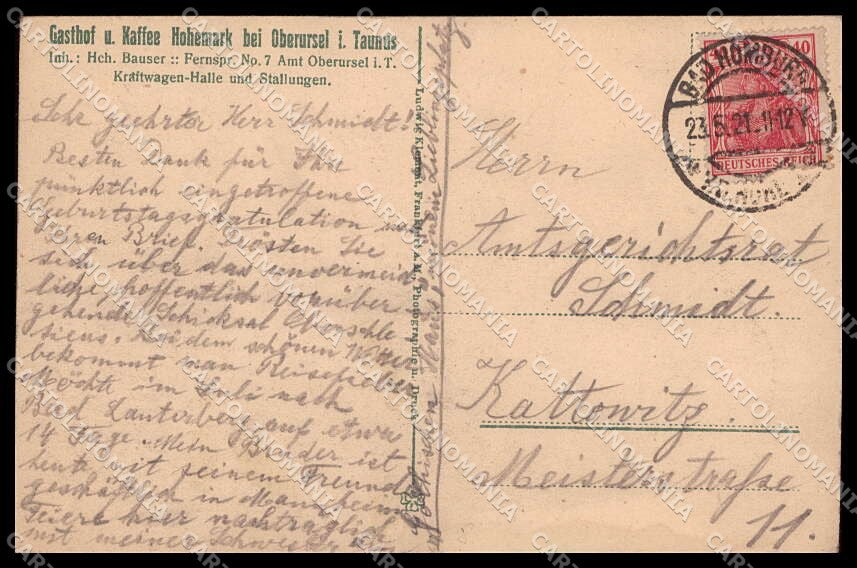 Gasthof u. Kaffee Hohemark bei Oberursel i. Taunus
Inh.: Hch. Bauser :: Fernspr. No. 7 Amt Oberursel i. T.
Kraftwagen-Halle und Stallungen.
Sehr geehrter Herr Schmidt!
Besten Dank für Ihre
pünktlich eingetroffene
Geburtstagsgratulation und
Ihren Brief. Trösten Sie
sich über das unvermeid
liche, hoffentlich vorüber
gehende Schicksal Oberschle
siens. Bei dem schönen Wetter
bekommt man Reisefieber
Möchte im Juli nach
Bad Lauterberg auf etwa
14 Tage. Mein Bruder ist
heute mit seinem Freunde
geschäftlich in Mannheim
Feiere hier nachträglich
mit meiner Schwester
meinem Lieblingsplatz.
Ludwig Klement, Frankfurt a. M. Photographie u. Druck
Herrn
Amtsgerichtsrat
Schmidt.
Kattowitz.
Meisterstraße
11.
BAD HOMBURG
23.5.21. 11-12 V
v. d. HÖHE
40
DEUTSCHES REICH
CARTOLINOMANIA